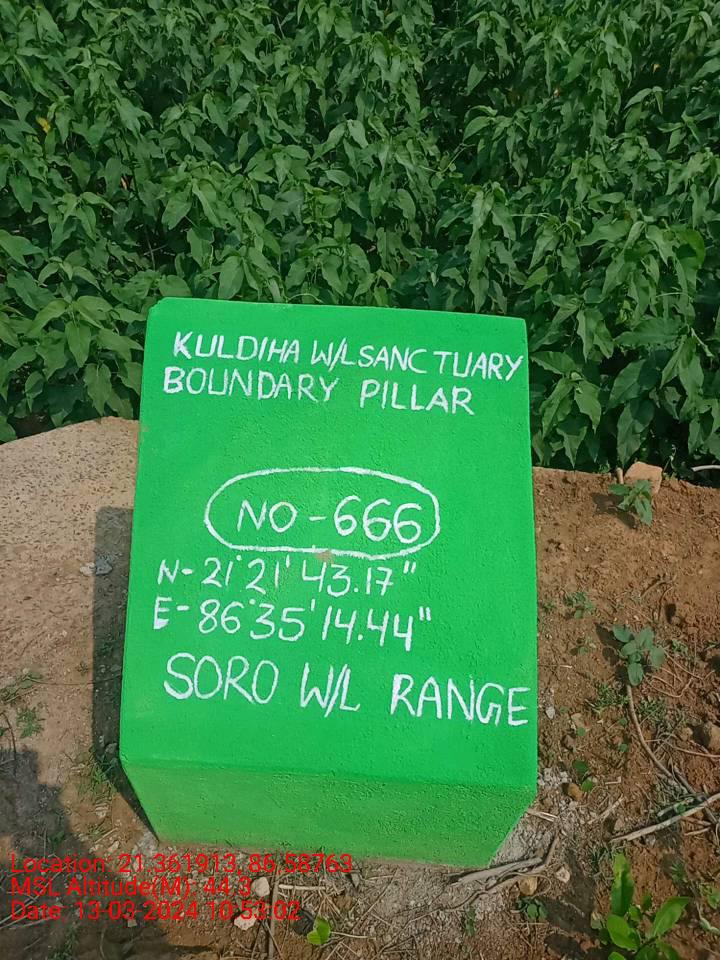 KULDIHA W/L SANCTUARY
BOUNDARY PILLAR
NO-666
N-21°21'43.17"
E-86°35'14.44"
SORO W/L RANGE
Location: 21.361913, 86.58763
MSL Altitude(M): 44.3
Date: 13-03-2024 10:53:02